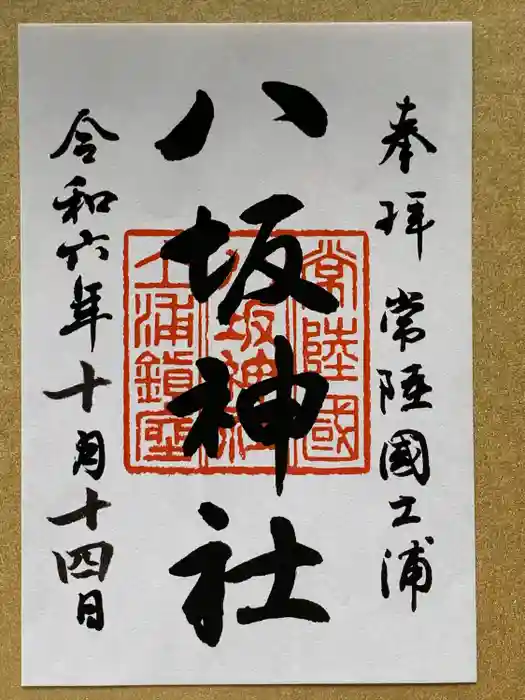 奉拝 常陸國土浦
八坂神社
令和六年十月十四日
常陸國
八坂神社
土浦鎮座